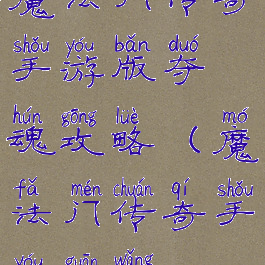 魔法门传奇
shǒu yóu bǎn duó
手游版夺
hún gōng lüè mó
魂攻略（魔
fǎ mén chuán qí shǒu
法门传奇手
yóu guān wǎng